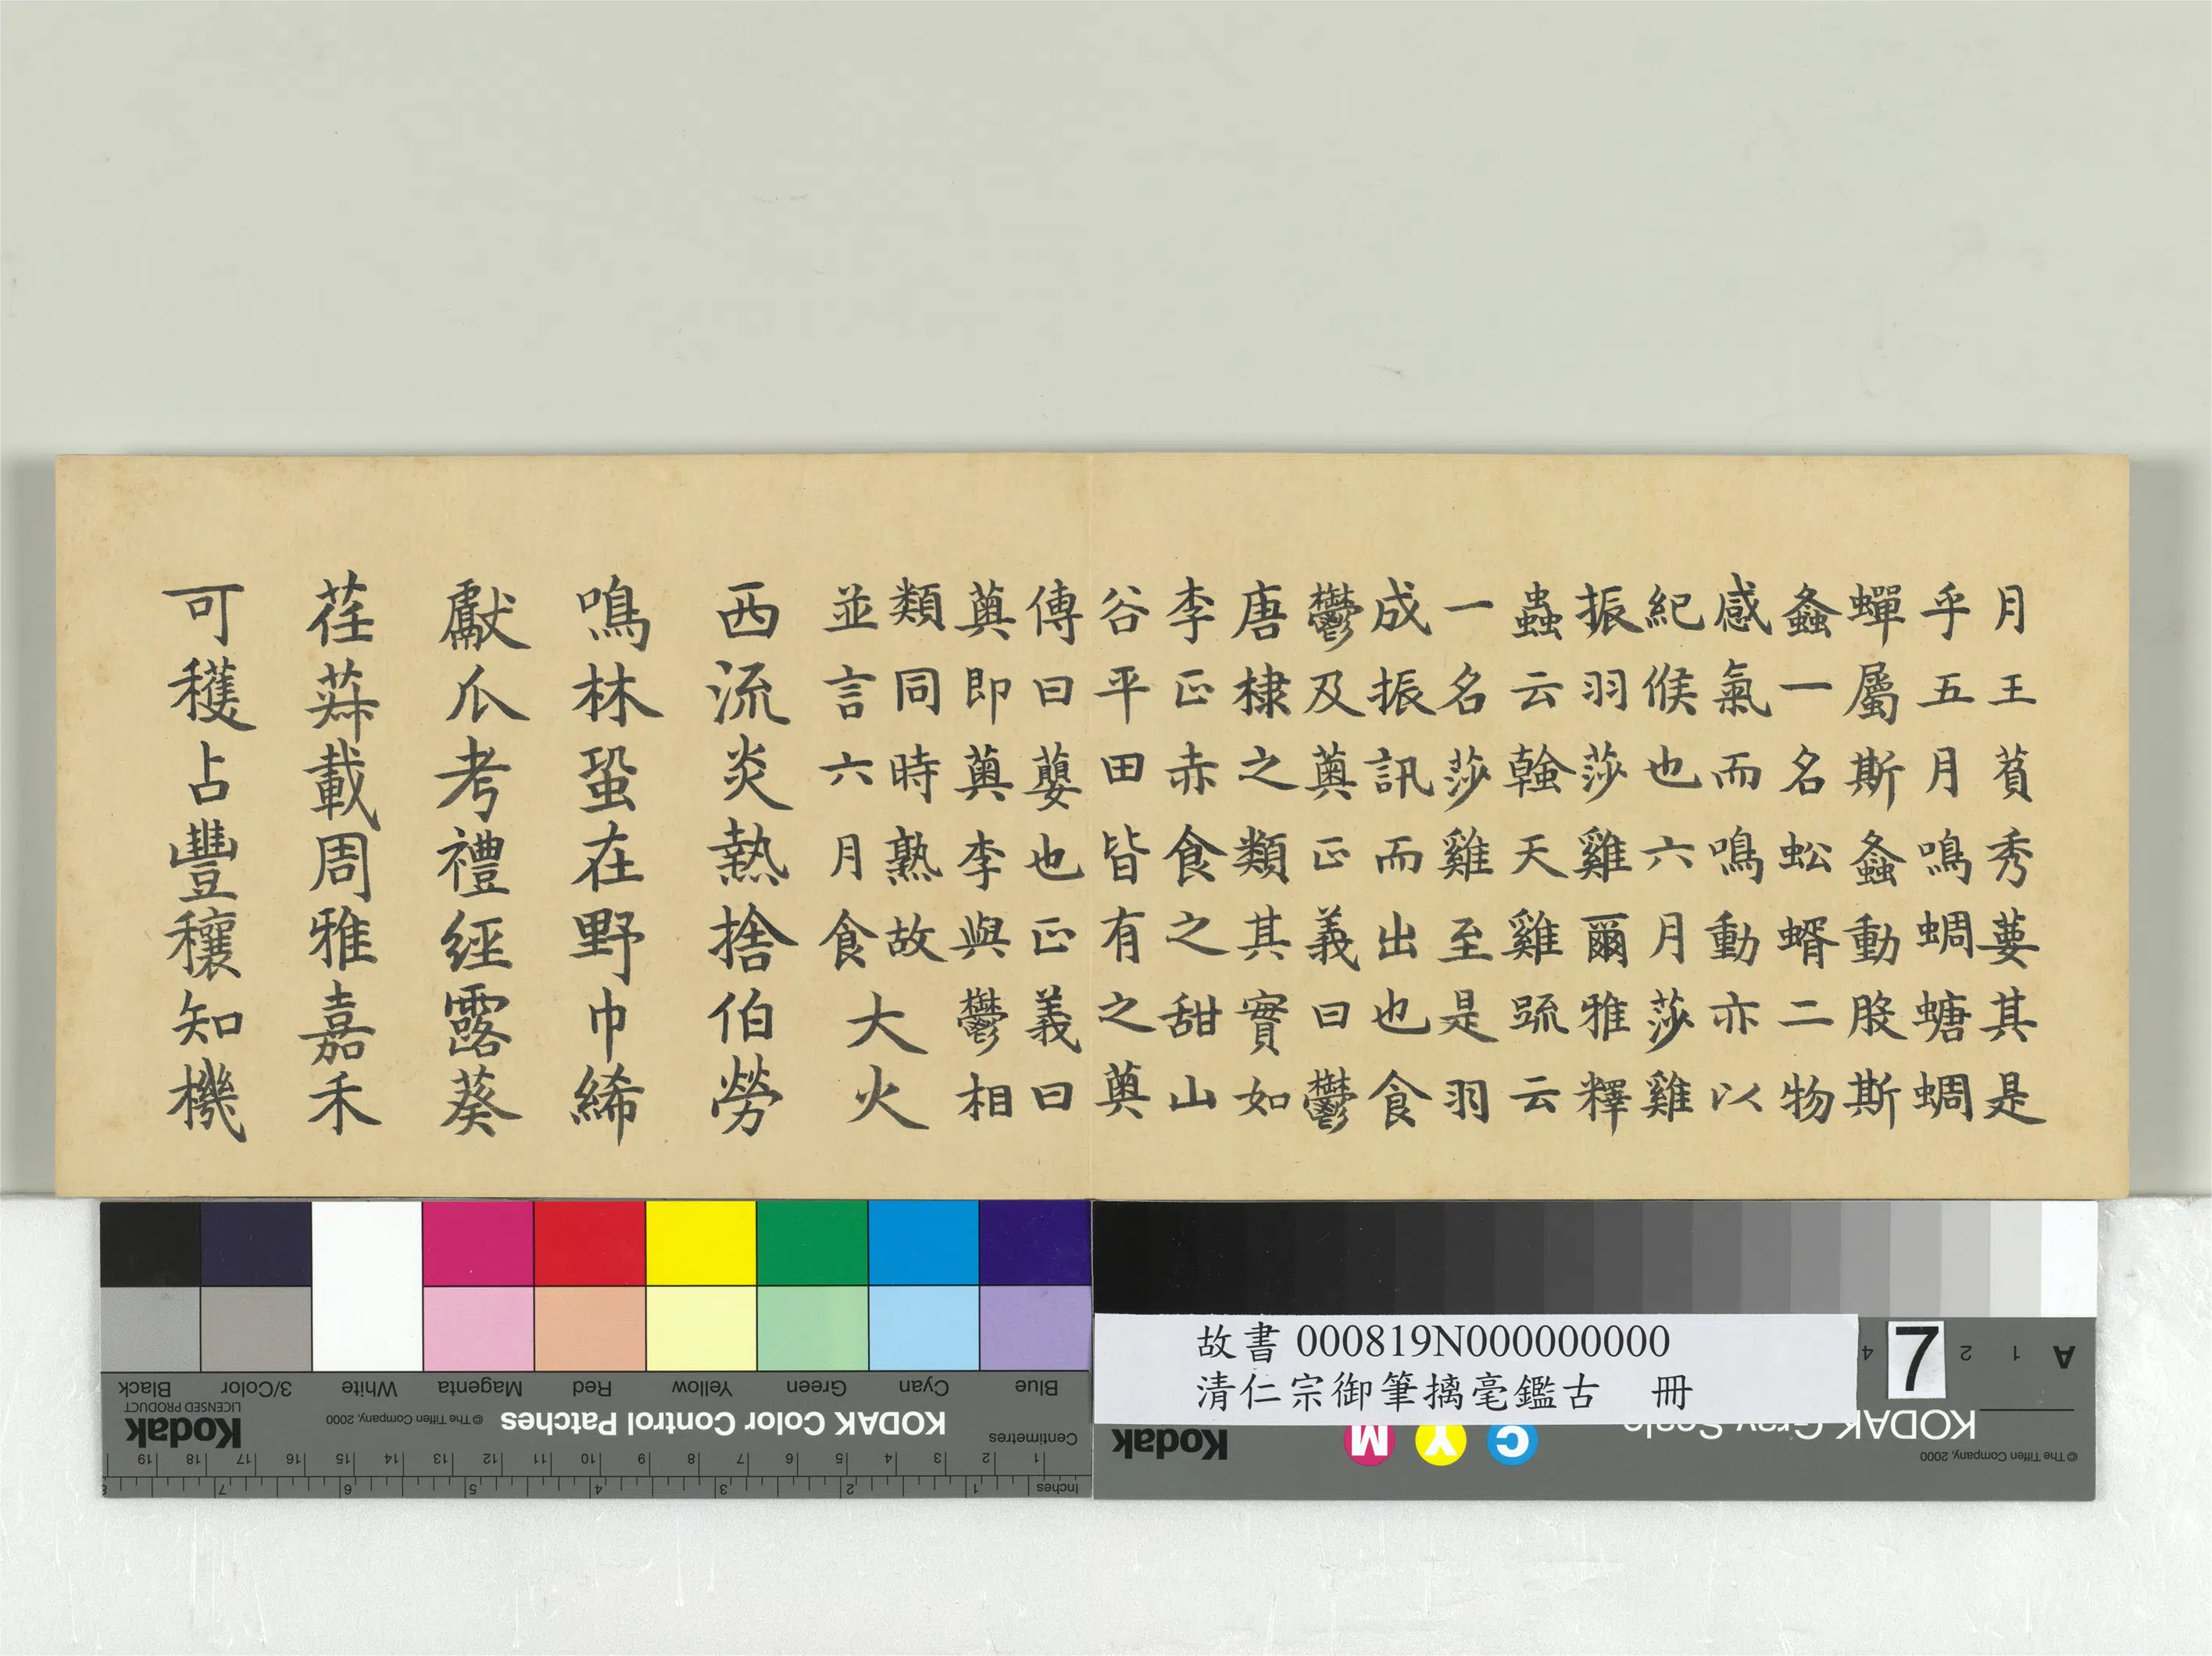 月王萯秀葽其是
乎五月鳴蜩螗蜩
蟬屬斯螽動股斯
螽一名蚣蝑二物
感氣而鳴動亦以
紀候也六月莎雞
振羽莎雞爾雅釋
蟲云螒天雞䟽云
一名莎雞至是羽
成振訊而出也食
鬱及薁正義曰鬱
唐棣之類其實如
李正赤食之甜山
谷平田皆有之薁
傳曰蘡也正義曰
薁即薁李與鬱相
類同時熟故
並言六月食
大火
西流炎熱捨伯勞
鳴林蛩在野巾絺
獻瓜考禮經露葵
荏菽載周雅嘉禾
可穫占豐穰知機
故書000819N000000000
清仁宗御筆摛毫鑑古 冊
7
A 1 2 4
KODAK Gray Scale
© The Tiffen Company, 2000
Kodak
C Y M
Blue Cyan Green Yellow Red Magenta White 3/Color Black
KODAK Color Control Patches
© The Tiffen Company, 2000
Kodak
LICENSED PRODUCT
Centimetres 1 2 3 4 5 6 7 8 9 10 11 12 13 14 15 16 17 18 19
Inches 1 2 3 4 5 6 7 8